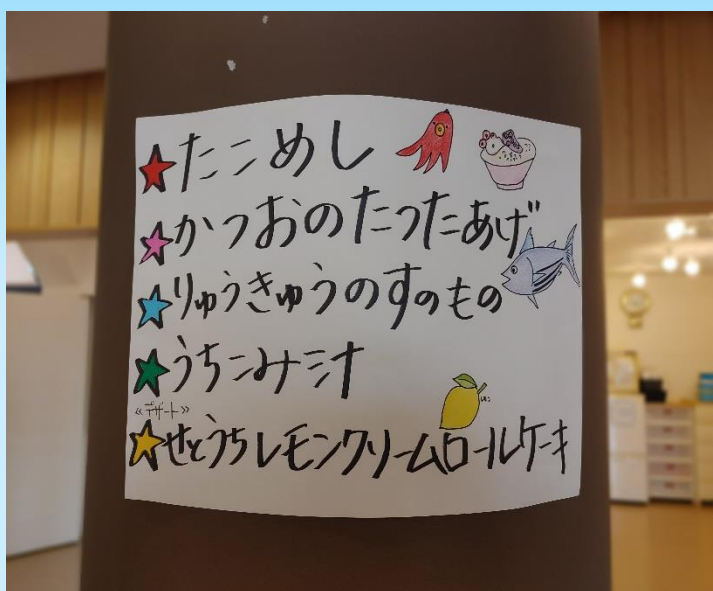 ★たこめし
★かつおのたつたあげ
★りゅうきゅうのすのもの
★うちこみ汁
≪デザート≫
★せとうちレモンクリームロールケーキ